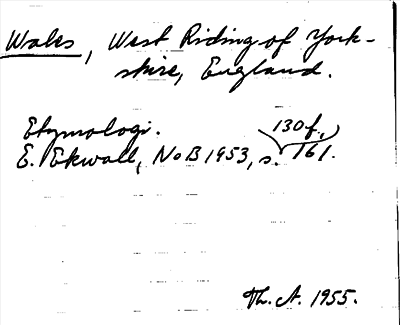 Wales, West Riding of York-
shire, England.
Etymologi.
130 f.,
E. Ekwall, NoB 1953, s. 161.
Th. A. 1955.